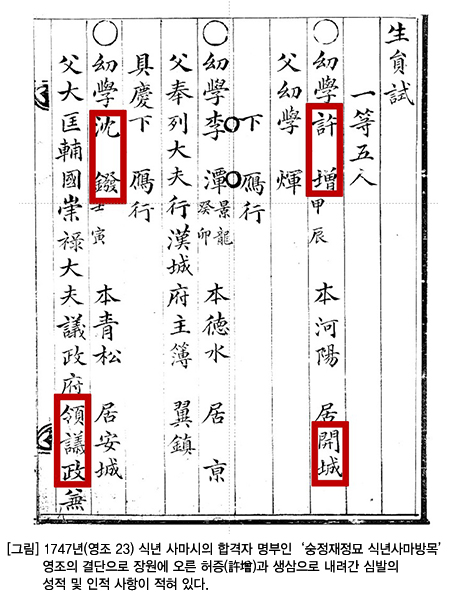 生員試
一等五人
幼學許 增 甲辰 本河陽 居開城
父幼學 煇
下 鴈行
幼學李 潭 景龍 癸卯 本德水 居 京
父奉列大夫行漢城府主簿 翼鎮
具慶下 鴈行
幼學沈 鏺 壬寅 本青松 居安城
父大匡輔國崇祿大夫議政府領議政兼
[그림] 1747년(영조 23) 식년 사마시의 합격자 명부인 ‘숭정재정묘 식년사마방목’
영조의 결단으로 장원에 오른 허증(許增)과 생삼으로 내려간 심발의
성적 및 인적 사항이 적혀 있다.